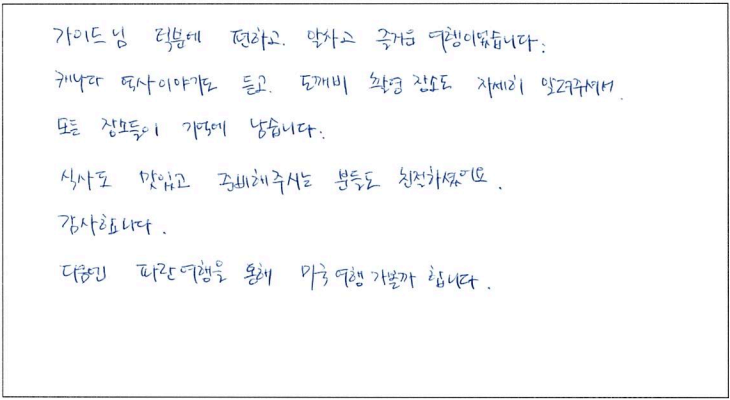 가이드님 덕분에 편하고. 알차고 즐거운 여행이었습니다.
캐나다 역사이야기도 듣고. 도깨비 촬영 장소도 자세히 알려주셔서.
모든 장소들이 기억에 남습니다.
식사도 맛있고 준비해주시는 분들도 친절하셨어요.
감사합니다.
다음엔 파란여행을 통해 미국여행 가볼까 합니다.